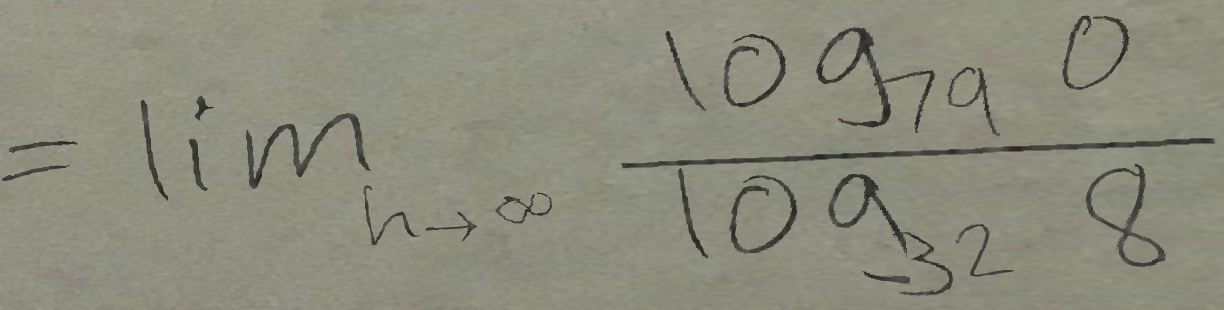 = \lim_{h \to \infty} \frac{\log_{79} 0}{\log_{32} 8}